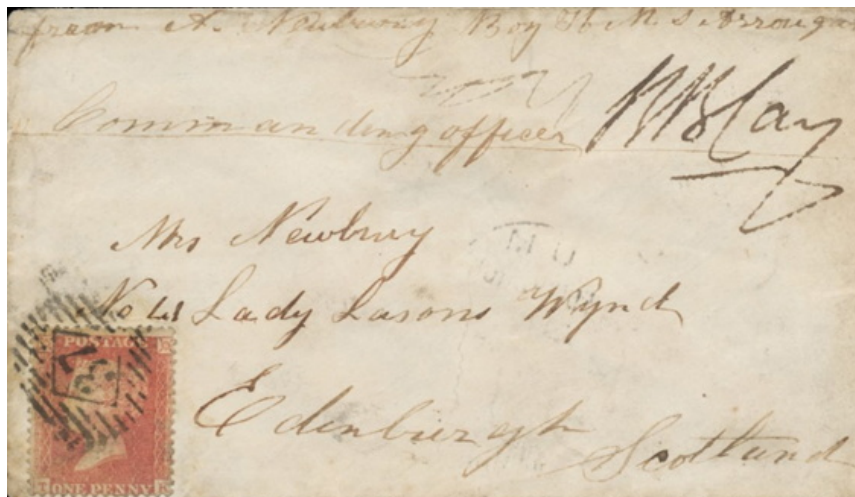 from A. Newbury Boy H.M.S Arrogan
Commanding officer
Mrs Newbury
No Lady Lasons Wynd
Edinburgh
Scotland
POSTAGE
73
ONE PENNY